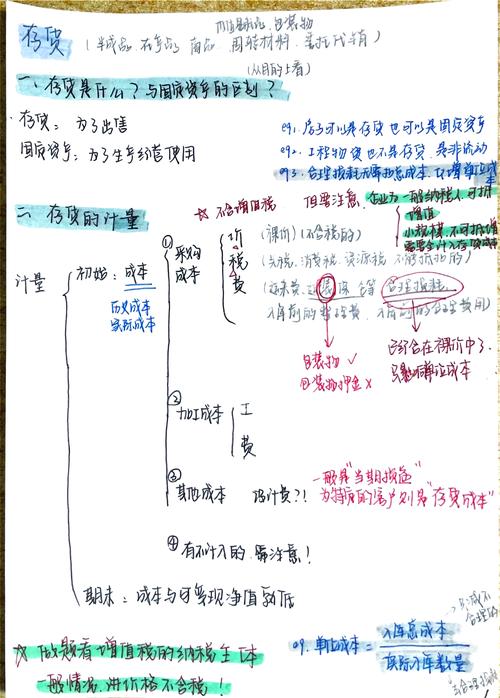 存货
(半成品、在产品、商品、周转材料、委托代销)
(从目的上看)
一、存货是什么?与固定资产的区别?
存货: 为了出售
固定资产: 为了生产经营使用
eg1. 房子可以是存货也可以是固定资产
eg2. 工程物资也不是存货, 是非流动
eg3. 合理损耗无需抛总成本, 只增单位成本
二、存货的计量
★ 不含增值税
但要注意:
企业为一般纳税人, 可抵增值
小规模, 不可抵增
需要合计入存货成本
计量
初始: 成本
历史成本
实际成本
① 采购成本
价 (裸价)(不含税的)
税 (关税、消费税、资源税 不能抵扣的)
费
入库前的
合理损耗
包装物 ✓
包装物押金 ×
已经含在裸价中了,
只影响单位成本
② 加工成本
工
费
③ 其他成本 设计费?!
一般是"当期损益"
为特定的客户 则是"存货成本"
④ 有不计入的, 需注意!
期末: 成本与可变现净值孰低
★ 做题看增值税的纳税主体
一般情况, 进价格不含税!
09. 单位成本 = 入库总成本 / 实际入库数量